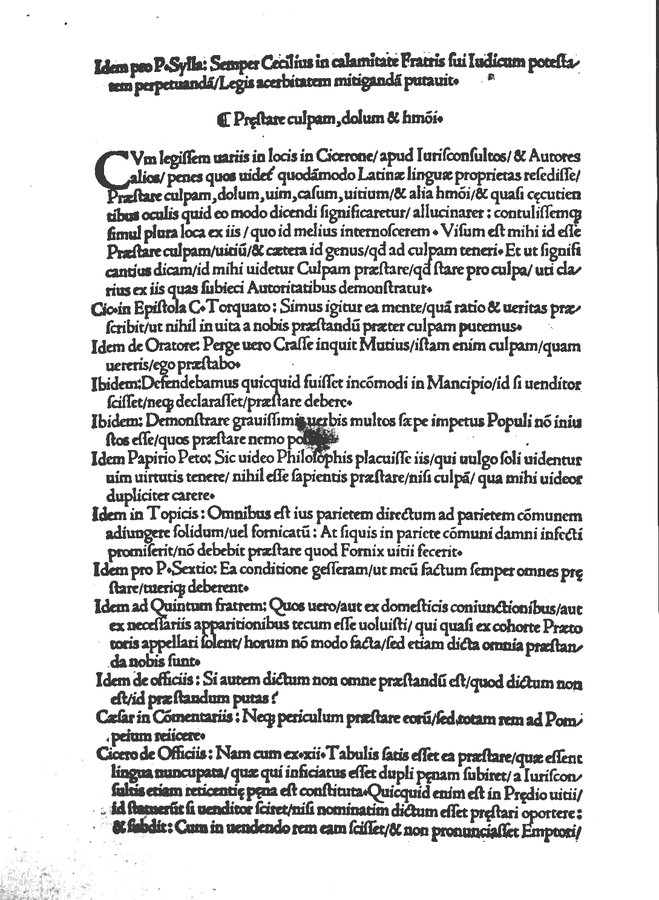 Idem pro P.Sylla: Semper Cecilius in calamitate Fratris sui Iudicum potesta/
tem perpetuandā/Legis acerbitatem mitigandā putauit.
¶ Pręstare culpam, dolum & hmōi.
CVm legissem uariis in locis in Cicerone/ apud Iurisconsultos/ & Autores
alios/ penes quos uidet quodāmodo Latinæ linguæ proprietas resedisse/
Præstare culpam, dolum, uim, casum, uitium/& alia hmōi/& quasi cęcutien
tibus oculis quid eo modo dicendi significaretur/ allucinarer: contulissemq;
simul plura loca ex iis / quo id melius internoscerem . Visum est mihi id esse
Præstare culpam/uitiū/& cætera id genus/qđ ad culpam teneri. Et ut signifi
cantius dicam/id mihi uidetur Culpam præstare/qđ stare pro culpa/ uti cla/
rius ex iis quas subieci Autoritatibus demonstratur.
Cic.in Epistola C. Torquato: Simus igitur ea mente/quā ratio & ueritas præ/
scribit/ut nihil in uita a nobis præstandū præter culpam putemus.
Idem de Oratore: Perge uero Crasse inquit Mutius/istam enim culpam/quam
uereris/ego præstabo.
Ibidem:Defendebamus quicquid fuisset incōmodi in Mancipio/id si uenditor
scisset/neq; declarasset/præstare debere.
Ibidem: Demonstrare grauissimis uerbis multos sæpe impetus Populi nō iniu
stos esse/quos præstare nemo
Idem Papirio Peto: Sic uideo Philosophis placuisse iis/qui uulgo soli uidentur
uim uirtutis tenere/ nihil esse sapientis præstare/nisi culpā/ qua mihi uideor
dupliciter carere.
Idem in Topicis: Omnibus est ius parietem directum ad parietem cōmunem
adiungere solidum/uel fornicatū: At siquis in pariete cōmuni damni infecti
promiserit/nō debebit præstare quod Fornix uitii fecerit.
Idem pro P.Sextio: Ea conditione gesseram/ut meū factum semper omnes prę
stare/tueriq; deberent.
Idem ad Quintum fratrem: Quos uero/aut ex domesticis coniunctionibus/aut
ex necessariis apparitionibus tecum esse uoluisti/ qui quasi ex cohorte Præto
toris appellari solent/ horum nō modo facta/sed etiam dicta omnia præstan/
da nobis sunt.
Idem de officiis: Si autem dictum non omne præstandū est/quod dictum non
est/id præstandum putas?
Cæsar in Cōmentariis: Neq; periculum præstare eorū/sed totam rem ad Pom/
peium reiicere.
Cicero de Officiis: Nam cum ex.xii.Tabulis satis esset ea præstare/quæ essent
lingua nuncupata/ quæ qui inficiatus esset dupli pęnam subiret/ a Iuriscon/
sultis etiam reticentię pęna est constituta.Quicquid enim est in Prędio uitii/
id statuerūt si uenditor sciret/nisi nominatim dictum esset pręstari oportere:
& subdit: Cum in uendendo rem eam scisset/& non pronunciasset Emptori/